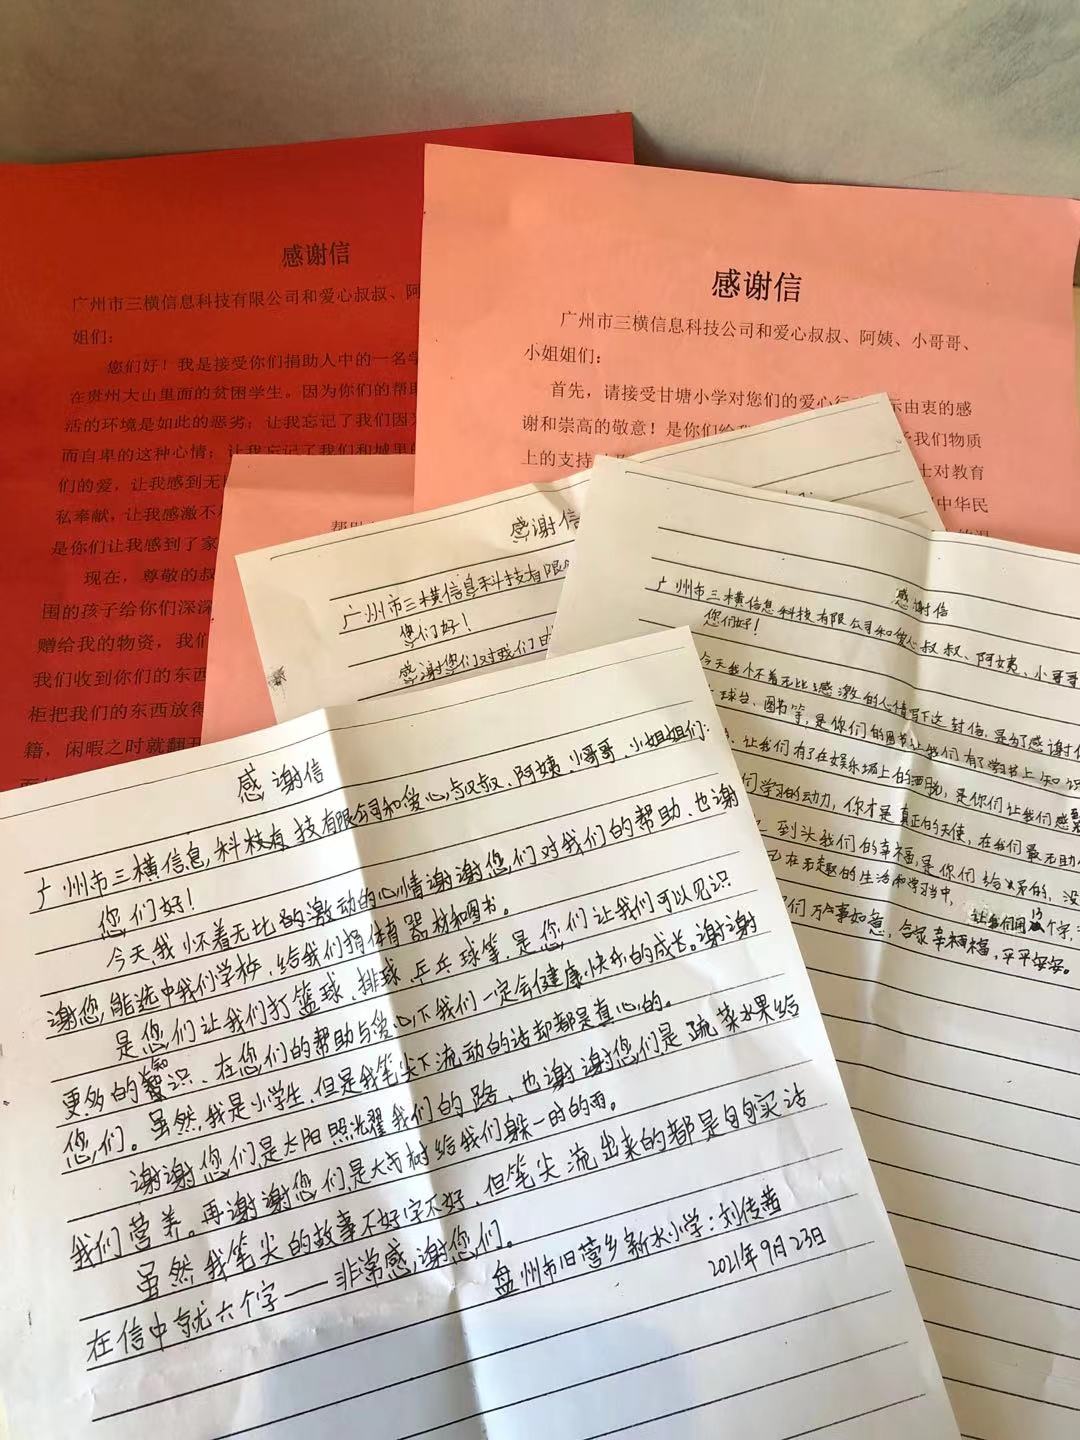 感谢信
广州市三横信息科技有限公司和爱心叔叔、阿
姐们：
您们好！我是接受你们捐助人中的一名学
在贵州大山里面的贫困学生。因为你们的帮助
活的环境是如此的恶劣；让我忘记了我们因
而自卑的这种心情；让我忘记了我们和城里的
们的爱，让我感到无
私奉献，让我感激不
是你们让我感到了家
现在，尊敬的叔
围的孩子给你们深深
赠给我的物资，我们
我们收到你们的东西
柜把我们的东西放得
籍，闲暇之时就翻开
感谢信
广州市三横信息科技公司和爱心叔叔、阿姨、小哥哥、
小姐姐们：
首先，请接受甘塘小学对您们的爱心行
示由衷的感
谢和崇高的敬意！是你们给我
我们物质
上的支持
士对教育
中华民
感谢信
广州市三横信息科技有限
您们好！
感谢您们对我们
感谢信
广州市三横信息科技有限公司和爱心叔叔、阿姨、小哥哥
您们好！
今天我怀着无比感激的心情写下这封信，是为了感谢
球台、图书等，是你们的图书让我们有了学书上知识
让我们有了在娱乐场上的洒脱，是你们让我们感
们学习的动力，你才是真正的天使，在我们最无助
到头我们的幸福，是你们给带来的，没
在有趣的生活和学习当中，
们万事如意，合家幸福，平平安安。
感谢信
广州市三横信息，科技有技有限公司和爱心叔叔、阿姨、小哥哥、小姐姐们：
您们好！
今天，我怀着无比的激动的心情谢谢您们对我们的帮助、也谢
谢您，能选中我们学校，给我们捐体育器材和图书。
是您们让我们打篮球、排球、乒乓球等，是您们让我们可以见识
更多的知识、在您们的帮助与爱心下我们一定会健康、快乐的成长。谢谢
您们。虽然我是小学生，但是我笔尖下流动的话却都是真心的。
谢谢您们是太阳照耀我们的路、也谢谢您们是蔬菜水果给
我们营养。再谢谢您们是大树给我们躲一时的雨。
虽然，我笔尖的故事不好字不好，但笔尖流出来的都是句句实话
在信中就六个字——非常感谢您们。
盘州市旧营乡新水小学：刘传茜
2021年9月23日